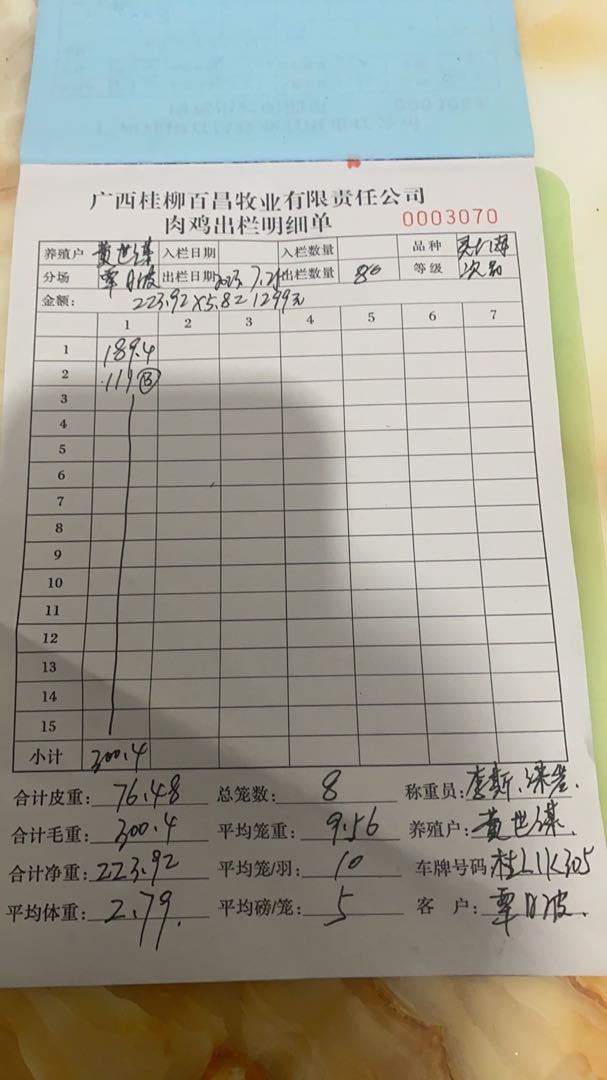 广西桂柳百昌牧业有限责任公司
肉鸡出栏明细单 0003070
养殖户 黄世谋 入栏日期 入栏数量 品种
分场 覃日波 出栏日期 2023.7.21 出栏数量 80 等级 次品
金额: 223.92×5.8=1299元
1 2 3 4 5 6 7
1 189.4
2 111
3
4
5
6
7
8
9
10
11
12
13
14
15
小计 300.4
合计皮重: 76.48 总笼数: 8 称重员:
合计毛重: 300.4 平均笼重: 9.56 养殖户: 黄世谋
合计净重: 223.92 平均笼/羽: 10 车牌号码 桂L1K305
平均体重: 2.79 平均磅/笼: 5 客户: 覃日波